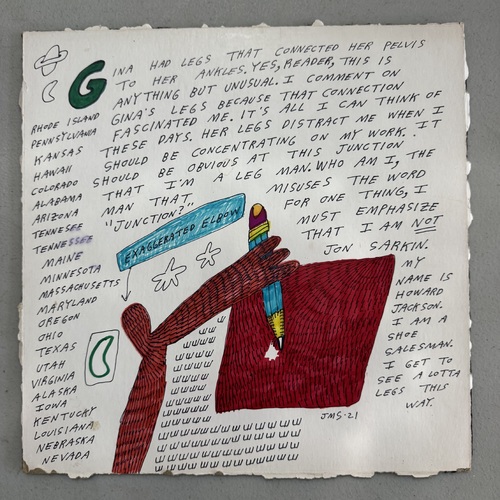 GINA HAD LEGS THAT CONNECTED HER PELVIS
TO HER ANKLES. YES, READER, THIS IS
ANYTHING BUT UNUSUAL. I COMMENT ON
GINA'S LEGS BECAUSE THAT CONNECTION
FASCINATED ME. IT'S ALL I CAN THINK OF
THESE DAYS. HER LEGS DISTRACT ME WHEN I
SHOULD BE CONCENTRATING ON MY WORK. IT
SHOULD BE OBVIOUS AT THIS JUNCTION
THAT I'M A LEG MAN. WHO AM I, THE
MAN THAT MISUSES THE WORD
"JUNCTION?" FOR ONE THING, I
MUST EMPHASIZE
THAT I AM NOT
JON SARKIN.
MY
NAME IS
HOWARD
JACKSON.
I AM A
SHOE
SALESMAN.
I GET TO
SEE A LOTTA
LEGS THIS
WAY.
RHODE ISLAND
PENNSYLVANIA
KANSAS
HAWAII
COLORADO
ALABAMA
ARIZONA
TENNESEE
TENNESSEE
MAINE
MINNESOTA
MASSACHUSETTS
MARYLAND
OREGON
OHIO
TEXAS
UTAH
VIRGINIA
ALASKA
IOWA
KENTUCKY
LOUISIANA
NEBRASKA
NEVADA
EXAGGERATED ELBOW
JMS-21